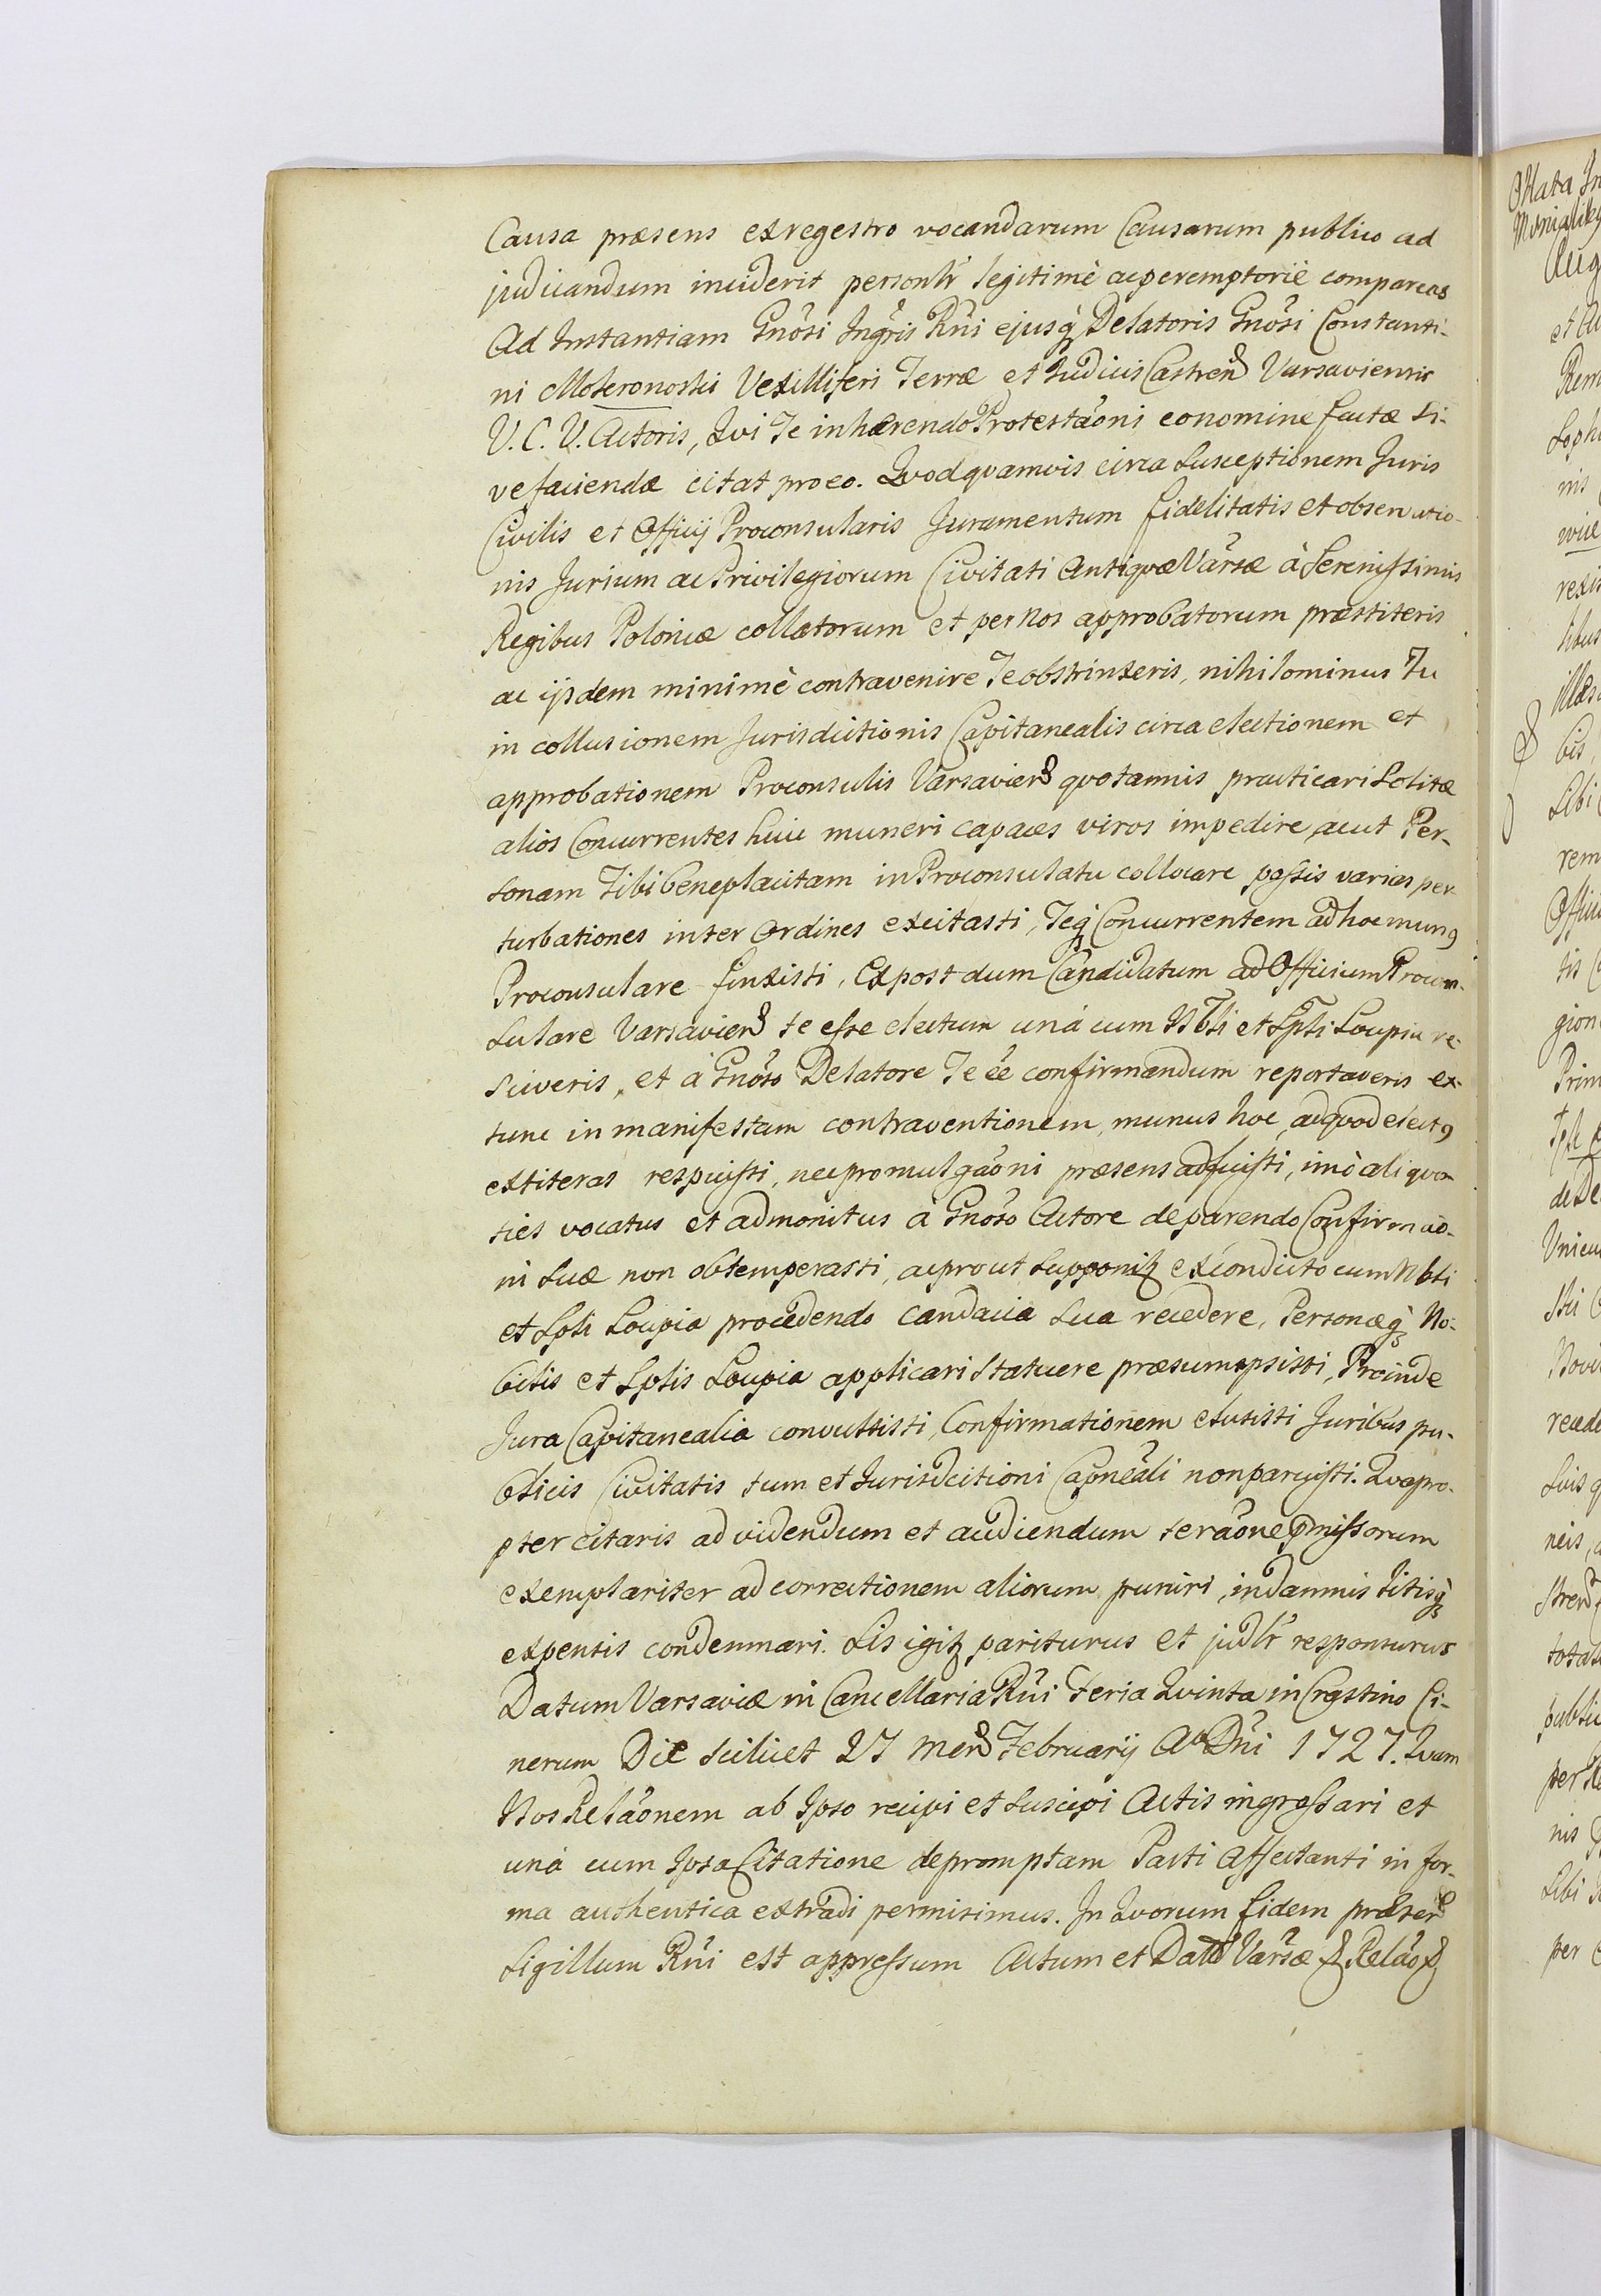 Causa præsens ex regestro vocandarum Causarum publico ad
judicandum inciderit personlr legitimè ac peremptoriè compareas
Ad Instantiam Gnosi Ingris Rni ejusq Delatoris Gnosi Constanti-
ni Mokronoski Vexilliferi Terræ et Judicis Castren Varsaviensis
V. C. V. Actoris, Qvi Te inhærendo Protestaoni eo nomine factæ si-
ve faciendæ citat pro eo. Qvod qvamvis circa susceptionem Juris
Civilis et Officij Proconsularis Juramentum fidelitatis et observatio-
nis Jurium ac Privilegiorum Civitati Antiqvæ Varsæ à Serenissimis
Regibus Poloniæ collatorum et per Nos approbatorum præstiteris
ac ijsdem minimè contravenire Te obstrinxeris, nihilominus Tu
in collusionem Jurisdictionis Capitanealis circa electionem et
approbationem Proconsulis Varsavien qvotannis practicari solitæ
alios Concurrentes huic muneri capaces viros impedire, ac ut Per-
sonam Tibi beneplacitam in Proconsulatu collocare possis varias per-
turbationes inter Ordines excitasti, Teq Concurrentem ad hoc mun9
Proconsulare finxisti, Ex post dum Candidatum ad Officium Procon-
sulare Varsavien te esse electum unà cum Nbli et Spli Loupia re-
sciveris, et à Gnoso Delatore Te ee confirmandum reportaveris ex-
tunc in manifestam contraventionem, munus hoc, ad qvod elect9
extiteras respuisti, nec promulgaoni præsens adfuisti, imò aliqvo-
ties vocatus et admonitus à Gnoso Actore de parendo Confirmao-
ni suæ non obtemperasti, ac prout supponitz ex condicto cum Nbli
et Spli Loupia procedendo candacia sua recedere, Personæq No-
bilis et Splis Loupia applicari statuere præsumpsisti, Proinde
Jura Capitanealia convulsisti, Confirmationem elusisti Juribus pu-
blicis Civitatis tum et Jurisdictioni Capneali non paruisti. Qvapro-
pter citaris ad videndum et audiendum te raone pmissorum
exemplariter ad correctionem aliorum puniri, in damnis litisq
expensis condemnari. Sis igitz pariturus et judlr responsurus
Datum Varsaviæ in Cancellaria Rni Feria Qvinta in Crastino Ci-
nerum Die scilicet 27 Men Februarij Ao Dni 1727. Qvam
Nos Relaonem ab Ipso recipi et suscipi Actis ingrossari et
unà cum Ipsa Citatione depromptam Parti Affectanti in for-
ma authentica extradi permisimus. In Qvorum fidem præsen
Sigillum Rni est appressum Actum et Datt Varsæ & Relao &